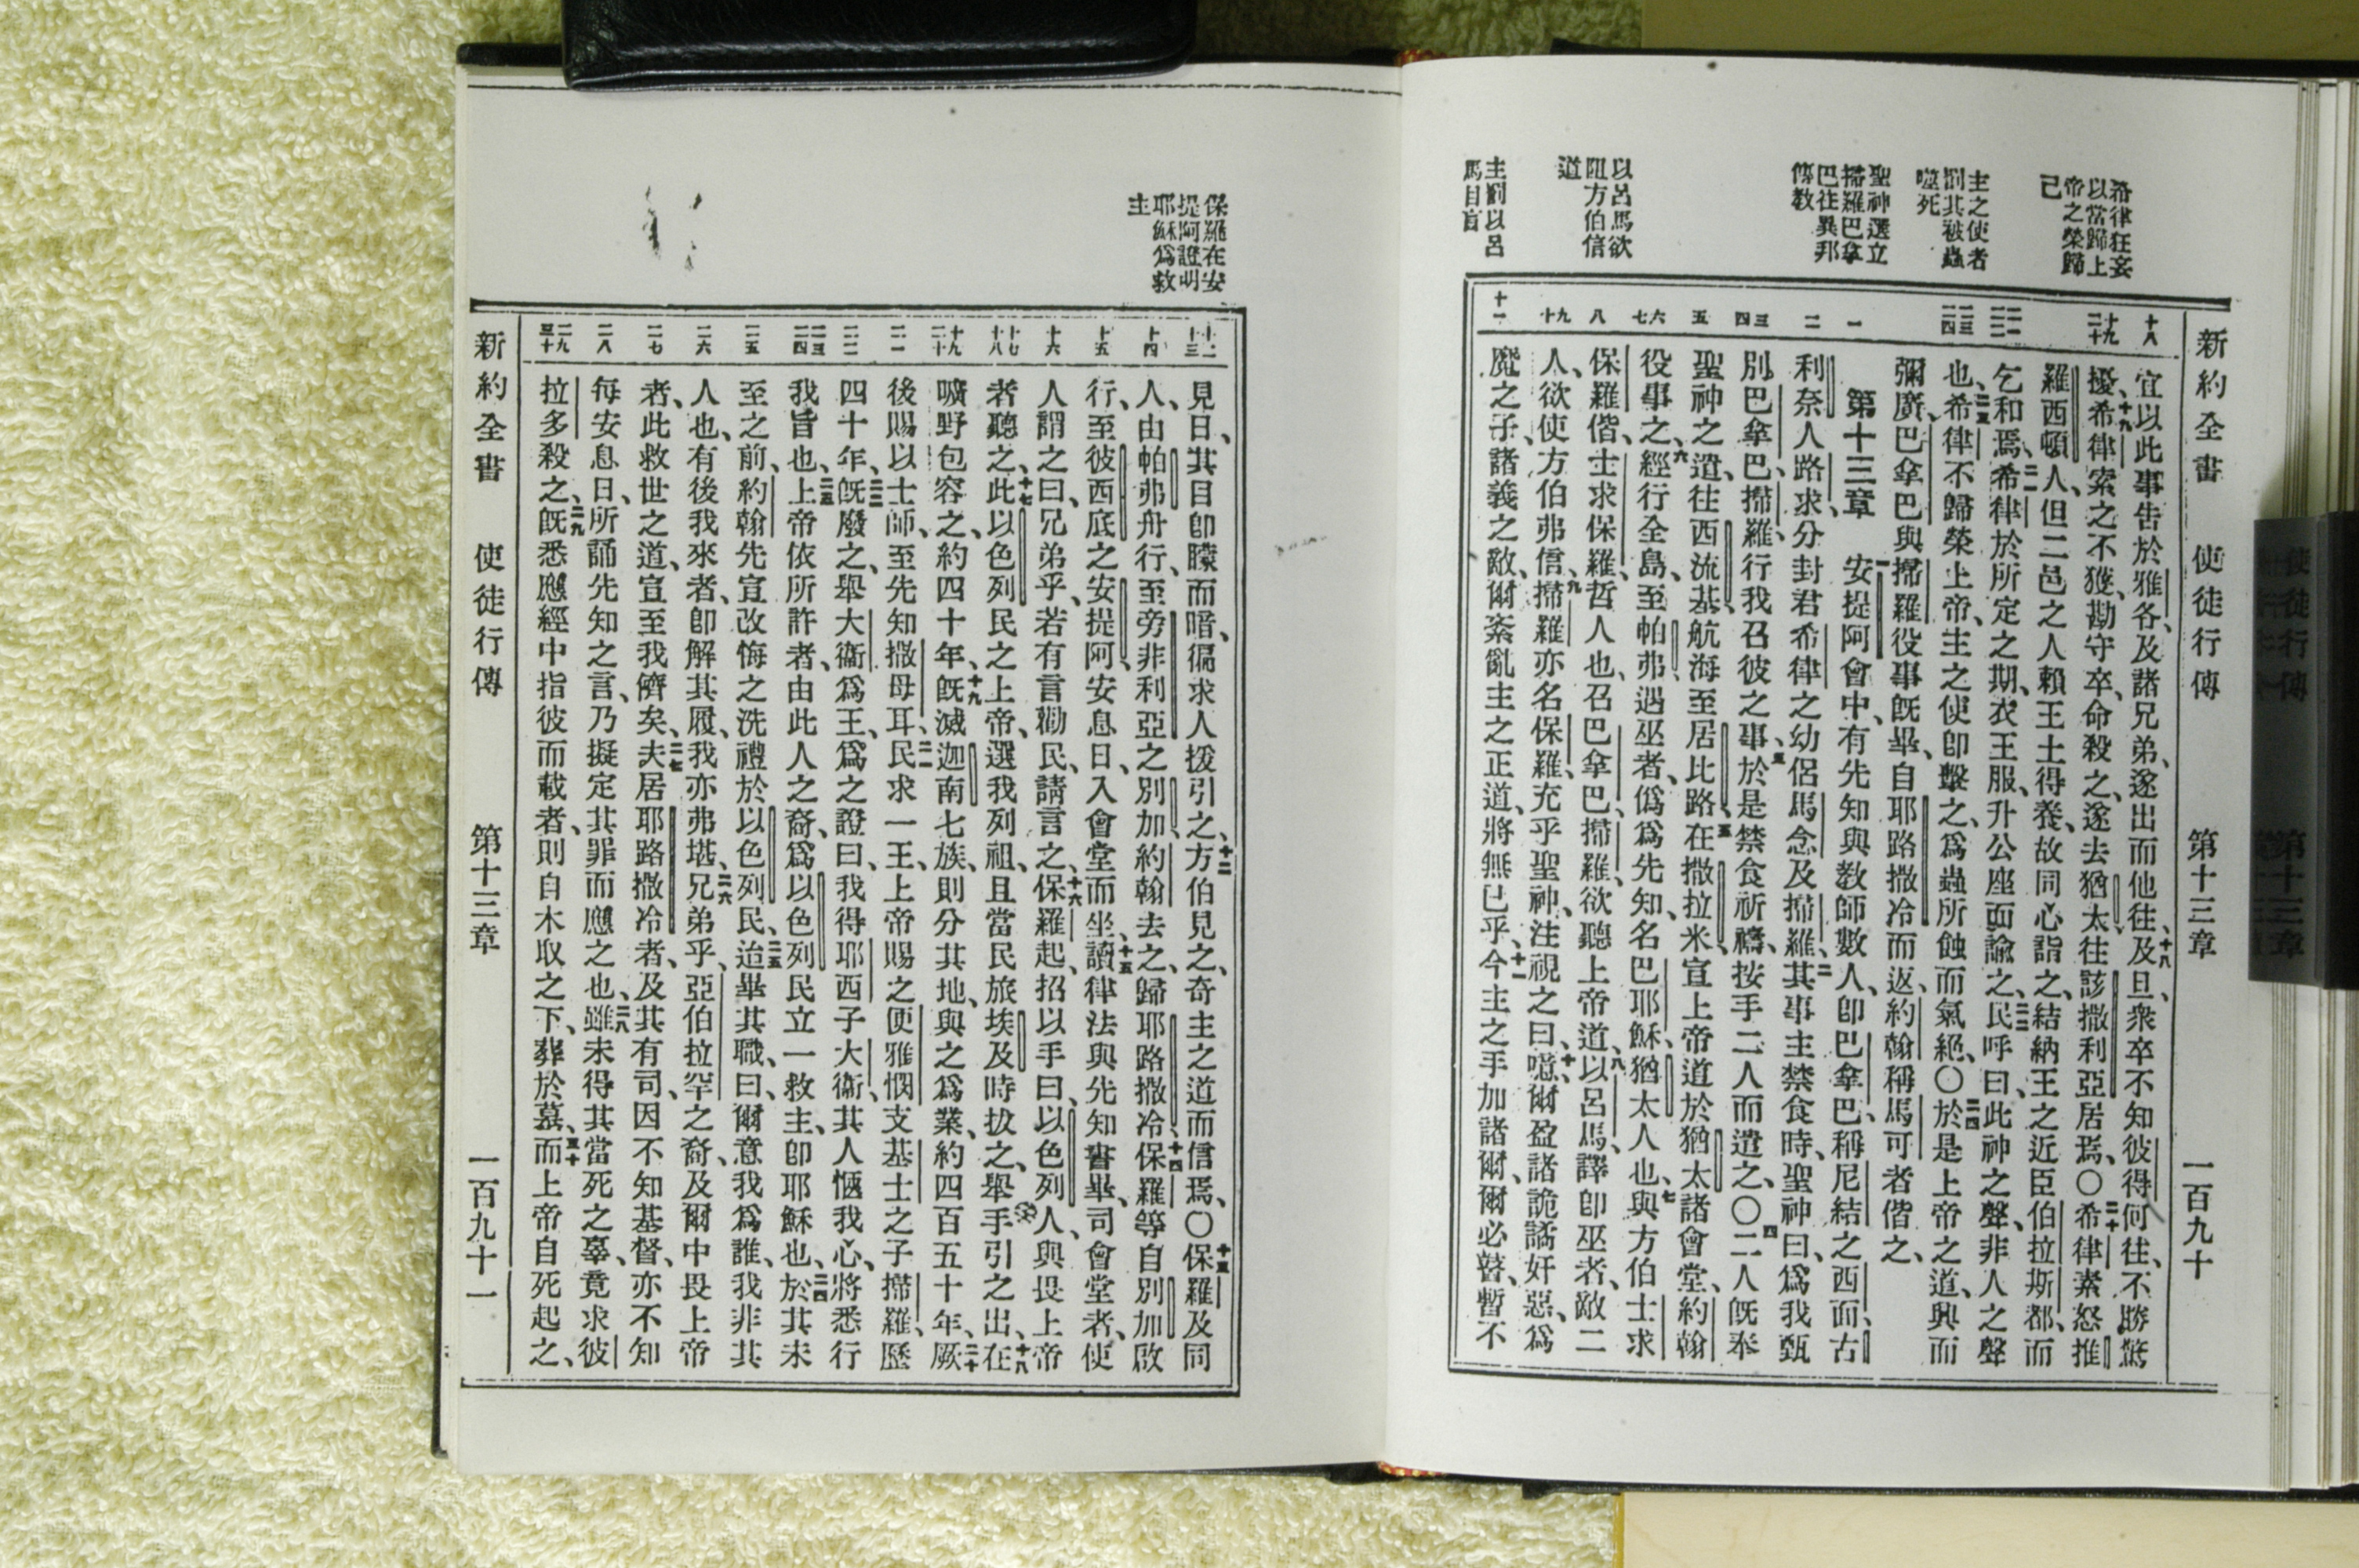 新約全書　使徒行傳　第十三章　一百九十
希律狂妄
以當歸上
帝之榮歸
己
主之使者
罰其被蟲
噬死
聖神選立
掃羅巴拿
巴往異邦
傳教
以呂馬欲
阻方伯信
道
主罰以呂
馬目盲
十八
十九 二十
二一 二二
二三 二四
一
二
三 四
五
六 七
八
九 十
十一
宜以此事告於雅各、及諸兄弟、遂出而他往、十八及旦、衆卒不知彼得何往、不勝驚
擾、十九希律索之不獲、勘守卒、命殺之、遂去猶太、往該撒利亞居焉、〇二十希律素怒推
羅西頓人、但二邑之人賴王土得養、故同心詣之、結納王之近臣伯拉斯都、而
乞和焉、二一希律於所定之期、衣王服、升公座面諭之、二二民呼曰、此神之聲、非人之聲
也、二三希律不歸榮上帝、主之使卽擊之、爲蟲所蝕而氣絕、〇二四於是上帝之道、興而
彌廣、二五巴拿巴與掃羅役事旣畢、自耶路撒冷而返、約翰稱馬可者偕之、
第十三章　一安提阿會中、有先知與教師數人、卽巴拿巴、稱尼結之西面、古
利奈人路求、分封君希律之幼侶馬念、及掃羅、二其事主禁食時、聖神曰、爲我甄
別巴拿巴、掃羅、行我召彼之事、三於是禁食祈禱、按手二人而遣之、〇四二人旣奉
聖神之遣、往西流基、航海至居比路、五在撒拉米、宣上帝道於猶太諸會堂、約翰
役事之、六經行全島、至帕弗、遇巫者、僞爲先知、名巴耶穌、猶太人也、七與方伯士求
保羅偕、士求保羅哲人也、召巴拿巴、掃羅、欲聽上帝道、八以呂馬、譯卽巫者、敵二
人、欲使方伯弗信、九掃羅亦名保羅、充乎聖神、注視之曰、十噫、爾盈諸詭譎奸惡、爲
魔之子、諸義之敵、爾紊亂主之正道、將無已乎、十一今主之手加諸爾、爾必瞽、暫不
保羅在安
提阿證明
耶穌爲救
主
十二 十三
十四
十五
十六
十七 十八
十九 二十
二一
二二
二三 二四
二五
二六
二七
二八
二九 三十
見日、其目卽矇而暗、徧求人援引之、十二方伯見之、奇主之道而信焉、〇十三保羅及同
人、由帕弗舟行、至旁非利亞之別加、約翰去之、歸耶路撒冷、十四保羅等自別加啟
行、至彼西底之安提阿、安息日、入會堂而坐、十五讀律法與先知書畢、司會堂者、使
人謂之曰、兄弟乎、若有言勸民、請言之、十六保羅起、招以手曰、以色列人、與畏上帝
者聽之、十七此以色列民之上帝、選我列祖、且當民旅埃及時拔之、舉手引之出、十八在
曠野包容之、約四十年、十九旣滅迦南七族、則分其地、與之爲業、約四百五十年、二十厥
後賜以士師、至先知撒母耳、二一民求一王、上帝賜之便雅憫支基士之子掃羅、歷
四十年、二二旣廢之、舉大衞爲王、爲之證曰、我得耶西子大衞、其人愜我心、將悉行
我旨也、二三上帝依所許者、由此人之裔、爲以色列民立一救主、卽耶穌也、二四於其未
至之前、約翰先宣改悔之洗禮於以色列民、二五迨畢其職、曰、爾意我爲誰、我非其
人也、有後我來者、卽解其履、我亦弗堪、二六兄弟乎、亞伯拉罕之裔、及爾中畏上帝
者、此救世之道、宣至我儕矣、二七夫居耶路撒冷者、及其有司、因不知基督、亦不知
每安息日、所誦先知之言、乃擬定其罪而應之也、二八雖未得其當死之辜、竟求彼
拉多殺之、二九旣悉應經中指彼而載者、則自木取之下、葬於墓、三十而上帝自死起之、
新約全書　使徒行傳　第十三章　一百九十一